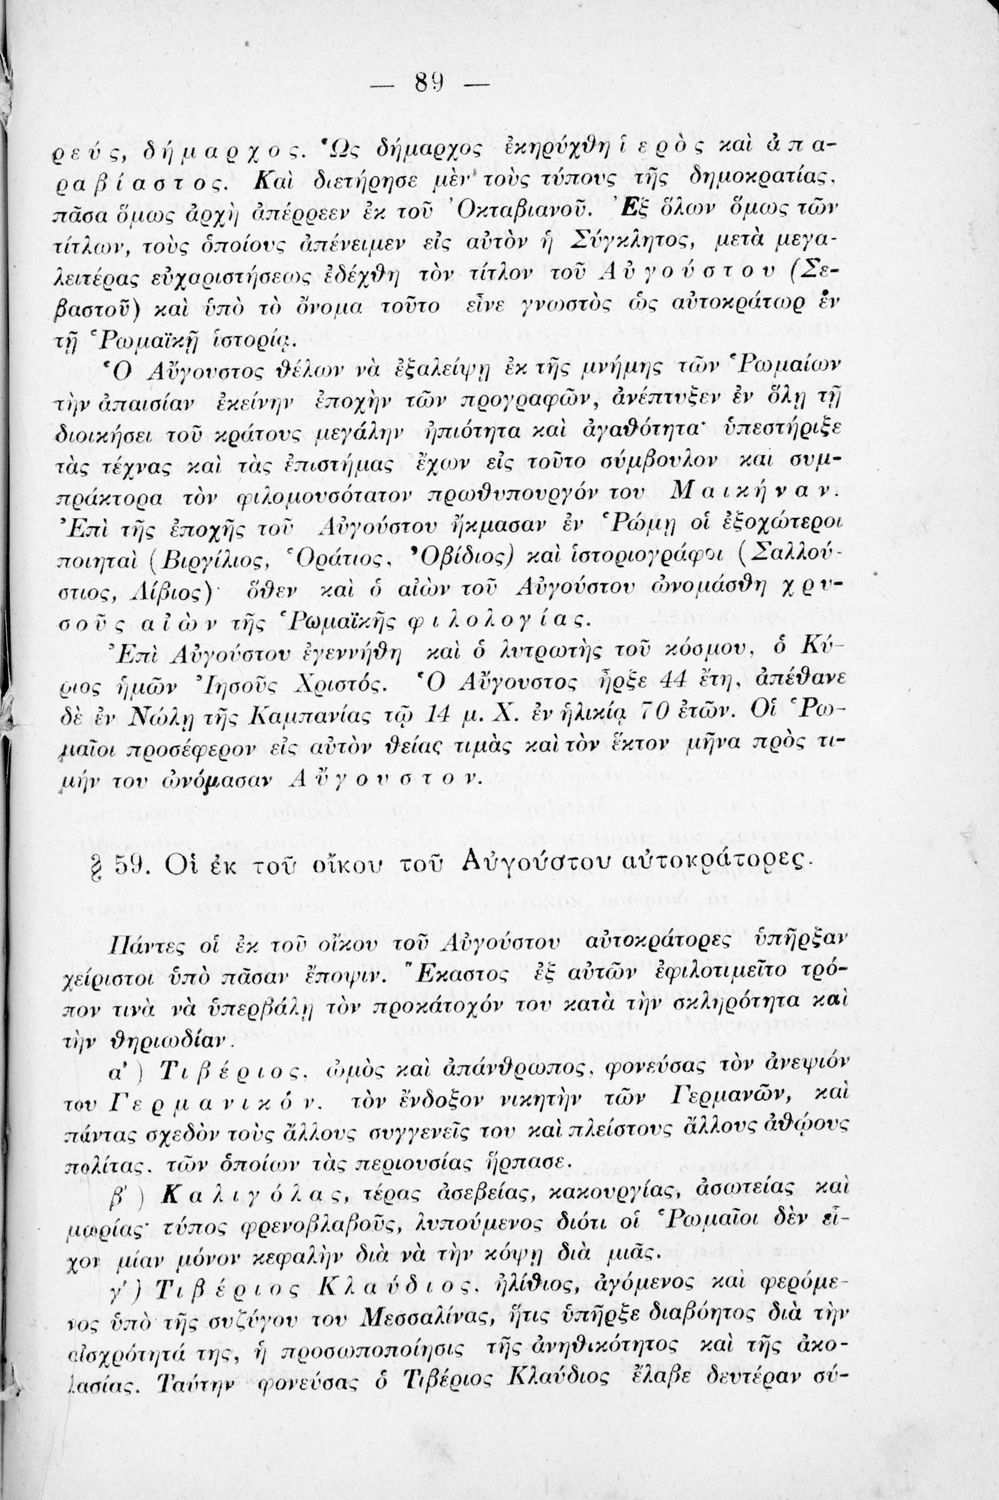 — 89 —
ρεύς, δήμαρχος. Ὡς δήμαρχος ἐκηρύχθη ἱερὸς καὶ ἀπα-
ραβίαστος. Καὶ διετήρησε μὲν τοὺς τύπους τῆς δημοκρατίας,
πᾶσα ὅμως ἀρχὴ ἀπέρρεεν ἐκ τοῦ Ὀκταβιανοῦ. Ἐξ ὅλων ὅμως τῶν
τίτλων, τοὺς ὁποίους ἀπένειμεν εἰς αὐτὸν ἡ Σύγκλητος, μετὰ μεγα-
λειτέρας εὐχαριστήσεως ἐδέχθη τὸν τίτλον τοῦ Αὐγούστου (Σε-
βαστοῦ) καὶ ὑπὸ τὸ ὄνομα τοῦτο εἶνε γνωστὸς ὡς αὐτοκράτωρ ἐν
τῇ Ῥωμαϊκῇ ἱστορίᾳ.
Ὁ Αὔγουστος θέλων νὰ ἐξαλείψῃ ἐκ τῆς μνήμης τῶν Ῥωμαίων
τὴν ἀπαισίαν ἐκείνην ἐποχὴν τῶν προγραφῶν, ἀνέπτυξεν ἐν ὅλῃ τῇ
διοικήσει τοῦ κράτους μεγάλην ἠπιότητα καὶ ἀγαθότητα· ὑπεστήριξε
τὰς τέχνας καὶ τὰς ἐπιστήμας ἔχων εἰς τοῦτο σύμβουλον καὶ συμ-
πράκτορα τὸν φιλομουσότατον πρωθυπουργόν του Μαικήναν.
Ἐπὶ τῆς ἐποχῆς τοῦ Αὐγούστου ἤκμασαν ἐν Ῥώμῃ οἱ ἐξοχώτεροι
ποιηταὶ (Βιργίλιος, Ὁράτιος, Ὀβίδιος) καὶ ἱστοριογράφοι (Σαλλού-
στιος, Λίβιος)· ὅθεν καὶ ὁ αἰὼν τοῦ Αὐγούστου ὠνομάσθη χρυ-
σοῦς αἰὼν τῆς Ῥωμαϊκῆς φιλολογίας.
Ἐπὶ Αὐγούστου ἐγεννήθη καὶ ὁ λυτρωτὴς τοῦ κόσμου, ὁ Κύ-
ριος ἡμῶν Ἰησοῦς Χριστός. Ὁ Αὔγουστος ἦρξε 44 ἔτη, ἀπέθανε
δὲ ἐν Νώλῃ τῆς Καμπανίας τῷ 14 μ. Χ. ἐν ἡλικίᾳ 70 ἐτῶν. Οἱ Ῥω-
μαῖοι προσέφερον εἰς αὐτὸν θείας τιμὰς καὶ τὸν ἕκτον μῆνα πρὸς τι-
μήν του ὠνόμασαν Αὔγουστον.
§ 59. Οἱ ἐκ τοῦ οἴκου τοῦ Αὐγούστου αὐτοκράτορες.
Πάντες οἱ ἐκ τοῦ οἴκου τοῦ Αὐγούστου αὐτοκράτορες ὑπῆρξαν
χείριστοι ὑπὸ πᾶσαν ἔποψιν. Ἕκαστος ἐξ αὐτῶν ἐφιλοτιμεῖτο τρό-
πον τινὰ νὰ ὑπερβάλῃ τὸν προκάτοχόν του κατὰ τὴν σκληρότητα καὶ
τὴν θηριωδίαν.
α΄) Τιβέριος, ὠμὸς καὶ ἀπάνθρωπος, φονεύσας τὸν ἀνεψιόν
του Γερμανικόν, τὸν ἔνδοξον νικητὴν τῶν Γερμανῶν, καὶ
πάντας σχεδὸν τοὺς ἄλλους συγγενεῖς του καὶ πλείστους ἄλλους ἀθῴους
πολίτας, τῶν ὁποίων τὰς περιουσίας ἥρπασε.
β΄) Καλιγόλας, τέρας ἀσεβείας, κακουργίας, ἀσωτείας καὶ
μωρίας· τύπος φρενοβλαβοῦς, λυπούμενος διότι οἱ Ῥωμαῖοι δὲν εἶ-
χον μίαν μόνον κεφαλὴν διὰ νὰ τὴν κόψῃ διὰ μιᾶς.
γ΄) Τιβέριος Κλαύδιος, ἠλίθιος, ἀγόμενος καὶ φερόμε-
νος ὑπὸ τῆς συζύγου του Μεσσαλίνας, ἥτις ὑπῆρξε διαβόητος διὰ τὴν
αἰσχρότητά της, ἡ προσωποποίησις τῆς ἀνηθικότητος καὶ τῆς ἀκο-
λασίας. Ταύτην φονεύσας ὁ Τιβέριος Κλαύδιος ἔλαβε δευτέραν σύ-